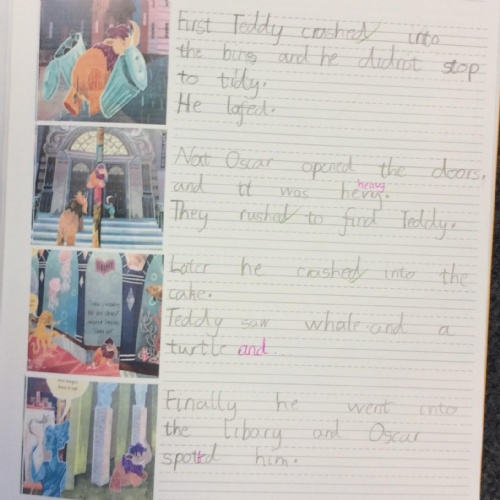 First Teddy crashed into
the bins and he didnot stop
to tidy.
He lafed.
Nat Oscar opened the doors.
and it was hevy. heavy
They rushed to find Teddy.
Later he crashed into the
cake.
Teddy saw whale and a
turtle and
Finally he went into
the libary and Oscar
spotted him.